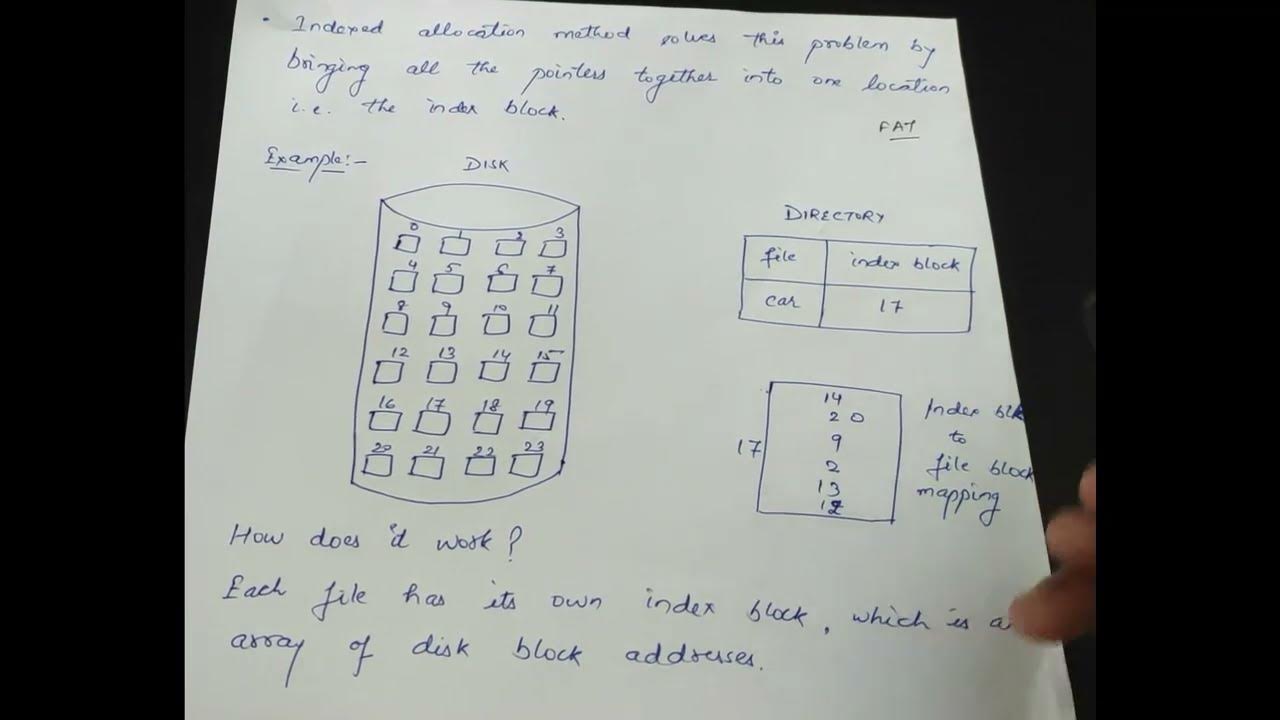 • Indexed allocation method solves this problem by
bringing all the pointers together into one location
i.e. the index block.
FAT
Example:-
DISK
0 1 2 3
4 5 6 7
8 9 10 11
12 13 14 15
16 17 18 19
20 21 22 23
DIRECTORY
file index block
car 17
17
14
20
9
2
13
12
Index blk
to
file block
mapping
How does it work?
Each file has its own index block, which is a
array of disk block addresses.